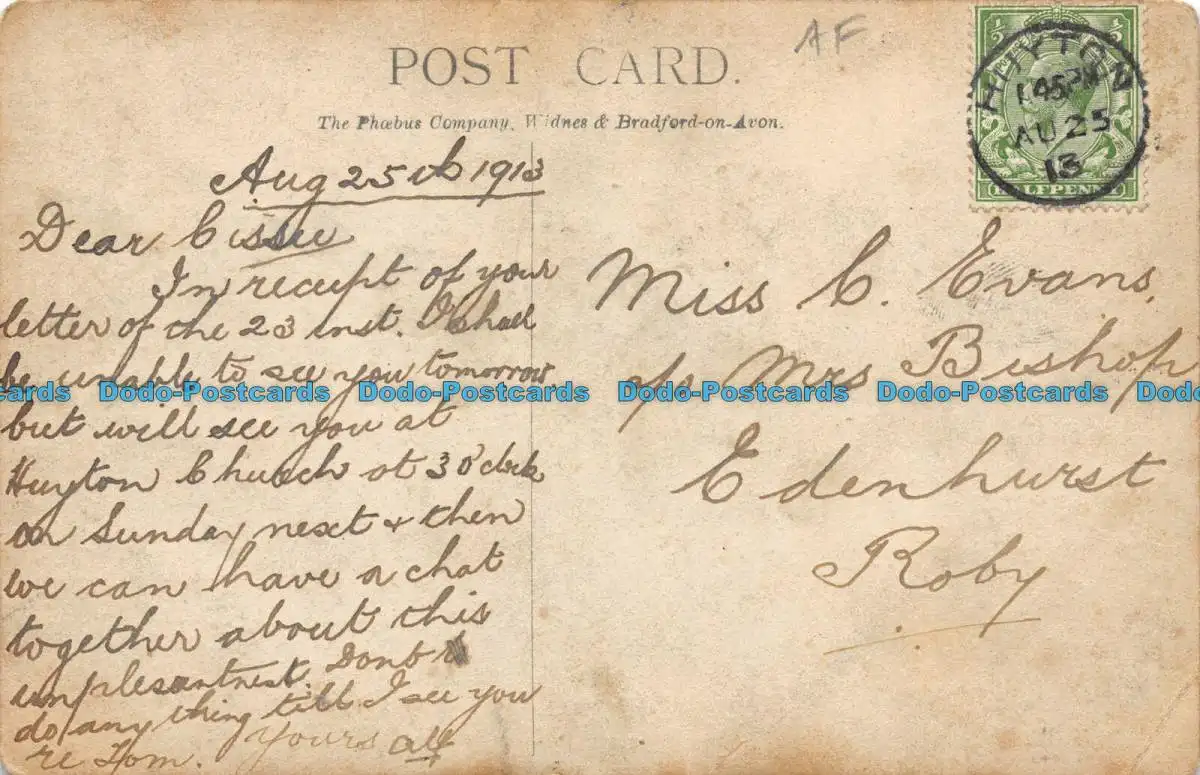 AF
POST CARD.
The Phœbus Company, Widnes & Bradford-on-Avon.
HUYTON
1.45PM
AU 25
13
HALFPENNY
Aug 25th 1913
Dear Cissie
In receipt of your
letter of the 23 inst. I shall
be unable to see you tomorrow
but will see you at
Huyton Church at 3 o'clock
on Sunday next & then
we can have a chat
together about this
unplesantnest. Dont
do anything till I see you
re Tom. Yours Alf
Miss C. Evans,
c/o Mrs Bishop
Edenhurst
Roby
Dodo-Postcards Dodo-Postcards Dodo-Postcards Dodo-Postcards